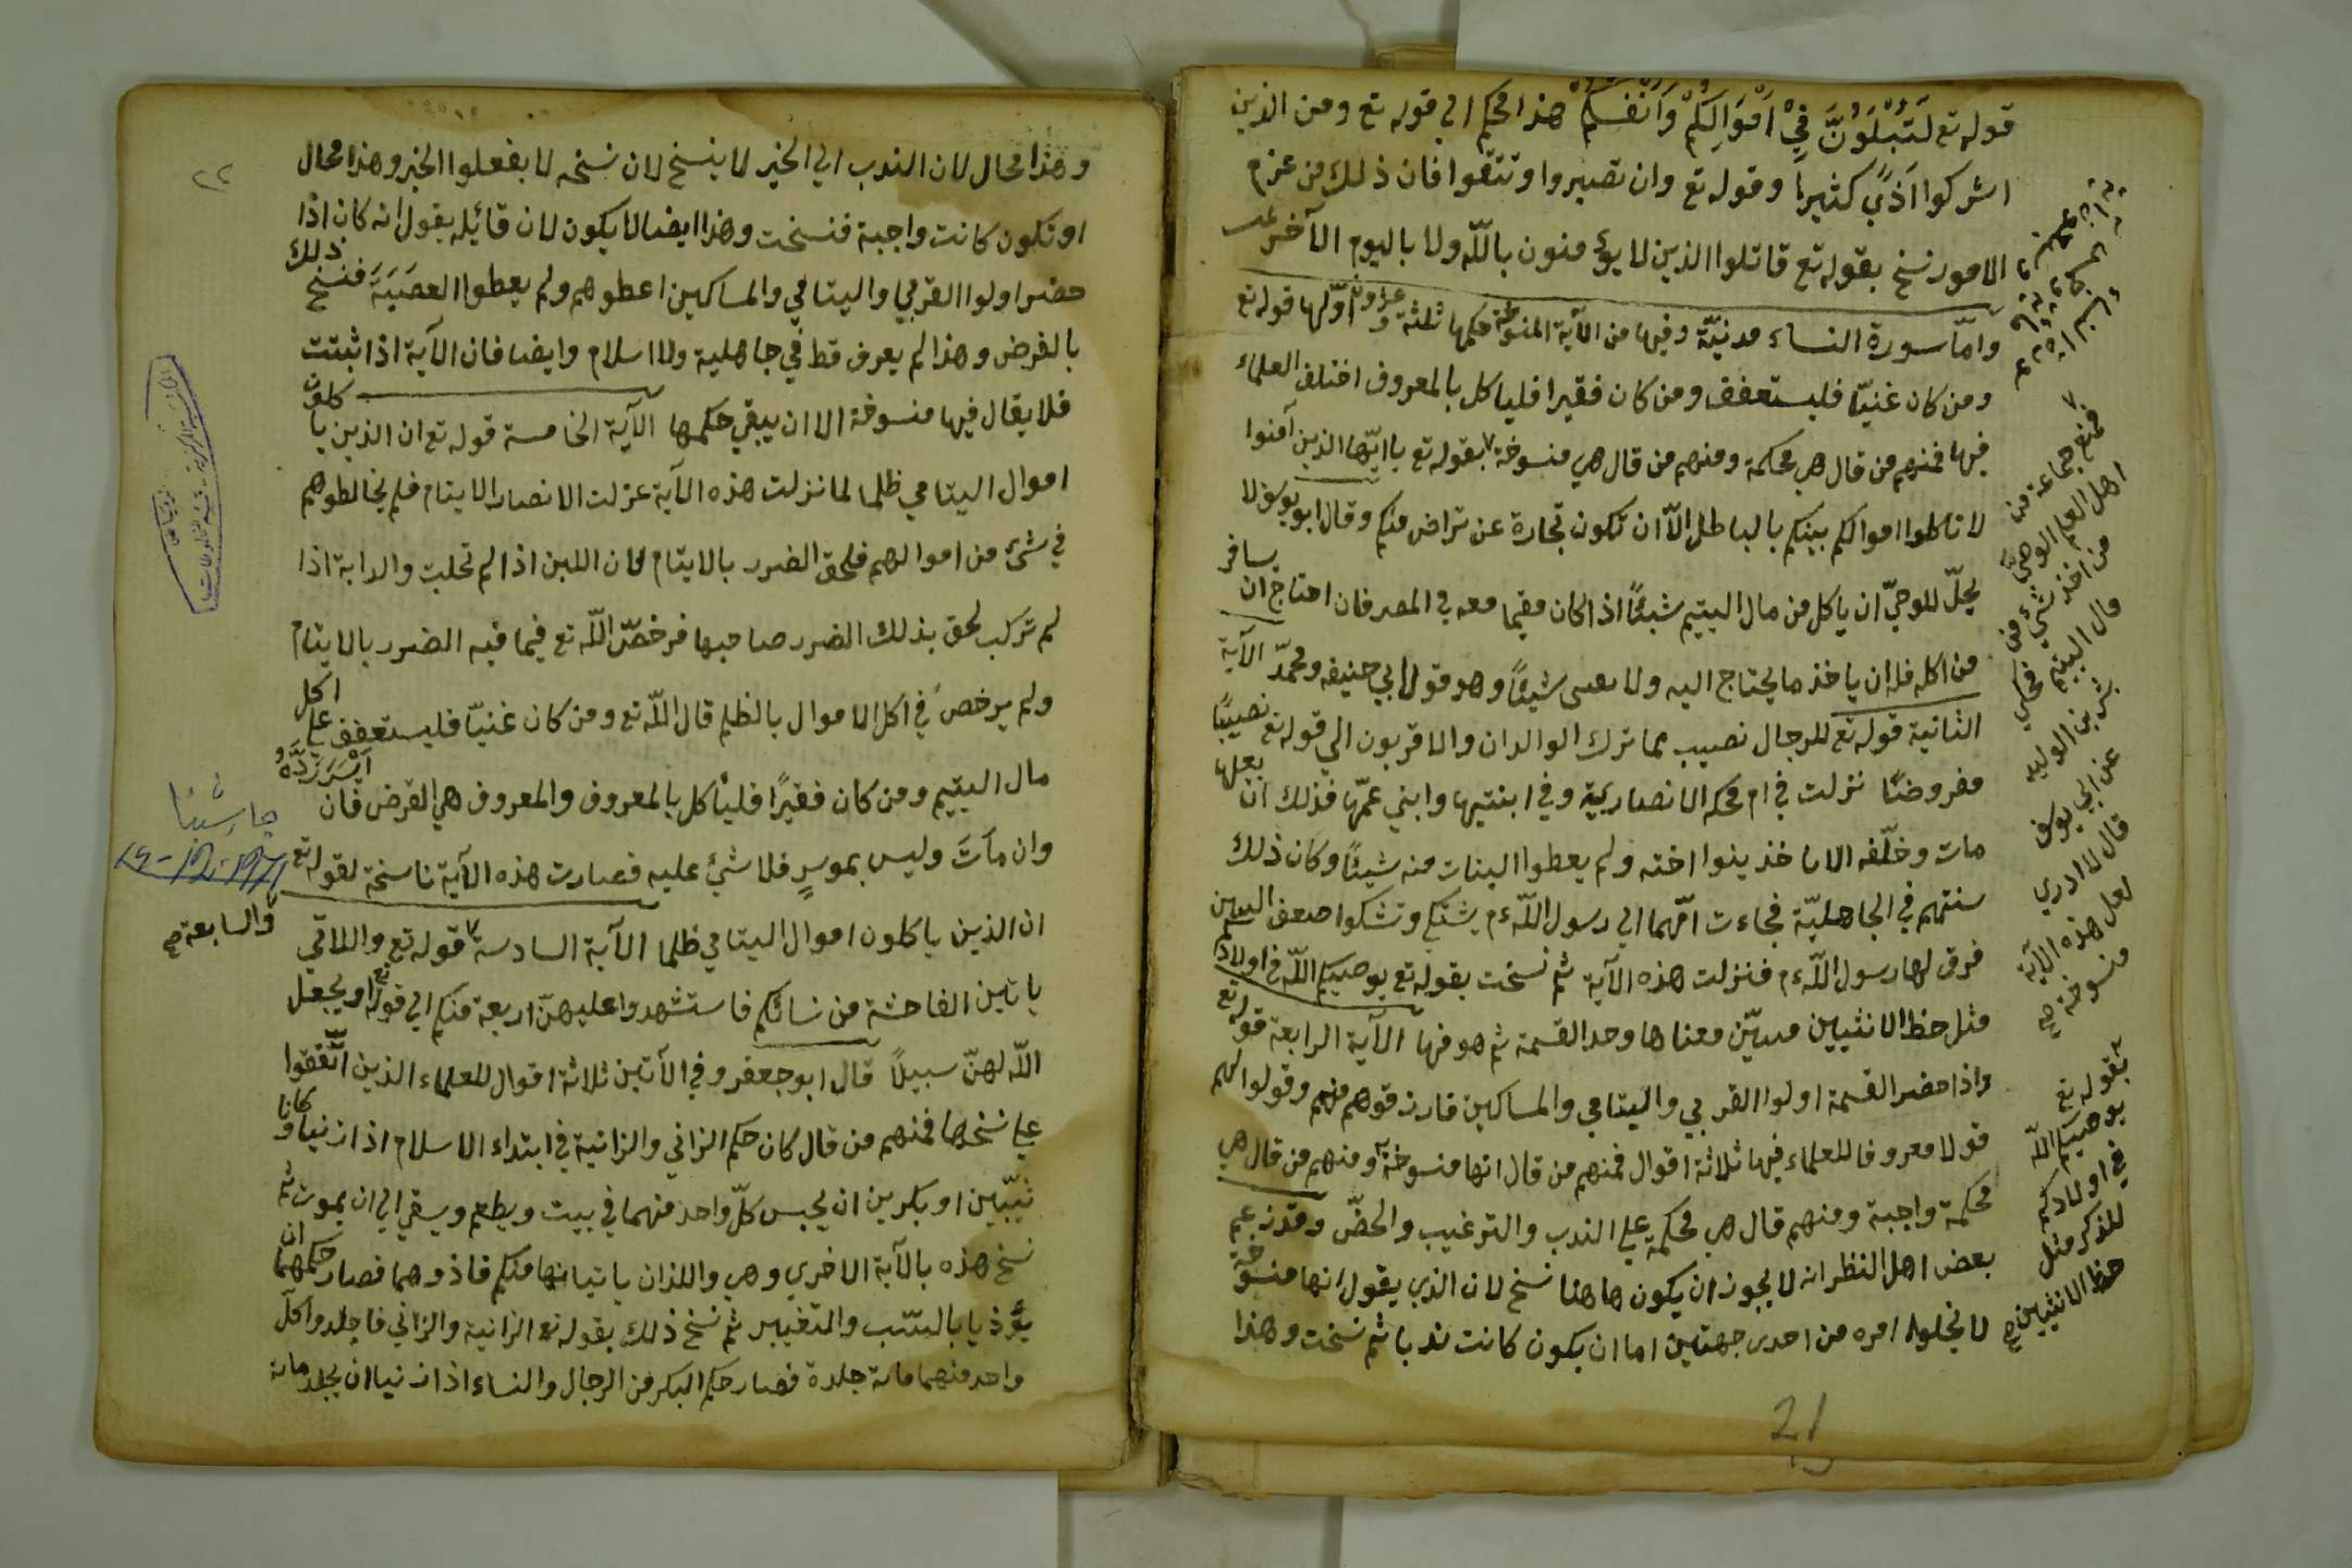 قوله تع لَتُبْلَوُنَّ فِيْ اَمْوَالِكُمْ وَاَنْفُسِكُمْ هذا محكم الي قوله تع ومن الذين
اشركوا اَذيً كثيراً وقوله تع وان تصبروا وتتقوا فان ذلك من عزم
الامور نسخ بقوله تع قاتلوا الذين لا يؤمنون باللّه ولا باليوم الآخر
وامّا سورة النساء مدنيّة وفيها من الآية المنسوخة حكمها ثلثة وعشرون اوّلها قوله تع
ومن كان غنيّا فليستعفف ومن كان فقيرا فلياكل بالمعروف اختلف العلماء
فيها فمنهم من قال هي محكمة ومنهم من قال هي منسوخة بقوله تع يا ايّها الذين آمنوا
لا تاكلوا اموالكم بينكم بالباطل الاّ ان تكون تجارة عن تراض منكم وقال ابو يوسف لا
يحلّ للوصيّ ان ياكل من مال اليتيم شيئًا اذا كان مقيما معه في المصر فان احتاج ان يسافر
من اكله فله ان ياخذ ما يحتاج اليه ولا شيئًا وهو قول ابي حنيفه ومحمدّ الآية
الثانية قوله تع للرجال نصيب مما ترك الوالدان والاقربون الي قوله تع نصيبًا
مفروضًا نزلت في ام كحه الانصارية وفي ابنتيها وابني عمّها فذلك انّ بعلها
مات وخلّفه الا بنوا اخته ولم يعطوا البنات منه شيئًا وكان ذلك
سنتهم في الجاهليّة فجاءت امّهما الي رسول اللّه م تشتكي وتشكوا ضعف
فرق لها رسول اللّه م فنزلت هذه الآية ثم نسخت بقوله تع يوصيكم اللّه في اولادكم
مثل حظ الانثيين معناها وحد القسمة ثم هو فرها الآية الرابعة قوله تع
واذا حضر القسمة اولوا القربي واليتامي والمساكين فارزقوهم منهم وقولوا لهم
قولا معروفا للعلماء فيها ثلاثة اقوال فمنهم من قال انها منسوخة ومنهم من قال هي
محكمة واجبة ومنهم قال هي محكمة علي الندب والترغيب والحضّ وقد زعم
بعض اهل النظر انه لا يجوز ان يكون هاهنا نسخ لان الذي يقول انها منسوخة
لا تخلوا امره من احدى جهتين اما ان يكون كانت ندبا ثم نسخت وهذا
فمنع جماعة من
اهل العلم الوصيّ
من اخذ شئ من
مال اليتيم فحكي
بشر بن الوليد
عن ابي يوسف
قال لا ادري
لعل هذه الآية
منسوخة صح
بقوله تع
يوصيكم اللّه
في اولادكم
للذكر مثل
حظ الانثيين صح
21
٢٢
وهذا محال لان الندب الي الخير لا ينسخ لان نسخه لا يفعلوا الخير وهذا محال
او تكون كانت واجبة فنسخت وهذا ايضا لا يكون لان قائله يقول انه كان اذا
حضر اولوا القربي واليتامي والمساكين اعطوهم ولم يعطوا العصَبَةَ فنسخ ذلك
بالفرض وهذا لم يعرف قط في جاهلية ولا اسلام وايضا فان الآية اذا ثبتت
فلا يقال فيها منسوخة الا ان يبقي حكمها الآية الخامسة قوله تع ان الذين ياكلون
اموال اليتامي ظلما لما نزلت هذه الآية عزلت الانصار الايتام فلم يخالطوهم
في شئ من اموالهم فلحق الضرر بالايتام لان اللبن اذا لم تحلب والدابة اذا
لم تركب لحق بذلك الضرر صاحبها فرخصّ اللّه تع فيما فيه الضرر بالايتام
ولم يرخص في اكل الاموال بالظلم قال اللّه تع ومن كان غنيّا فليستعفف علي اكل
مال اليتيم ومن كان فقيرًا فليأكل بالمعروف والمعروف هي القرض فان اَيْسَرَ رَدَّهُ
وان ماتَ وليس بموسرٍ فلا شئ عليه فصارت هذه الآية ناسخة لقوله تع
ان الذين ياكلون اموال اليتامي ظلما الآية السادسة قوله تع واللاتي
والسابعة صح
ياتين الفاحشة من نسائكم فاستشهدوا عليهنّ اربعة منكم الي قوله تع او يجعل
اللّه لهنّ سبيلاً قال ابو جعفر وفي الآتين ثلاثة اقوال للعلماء الذين اتّفقوا
علي نسخها فمنهم من قال كان حكم الزاني والزانية في ابتداء الاسلام اذا زنيا وكانا
ثيّبين او بكرين ان يحبس كلّ واحد منهما في بيت ويطعم ويسقي الي ان يموت ثم
نسخ هذه بالآية الاخري وهي واللذان ياتيانها منكم فاذوهما فصار حكمهما ان
يؤذيا بالسّب والتغيير ثم نسخ ذلك بقوله تع الزانية والزاني فاجلدوا كلّ
واحد منهما مائة جلدة فصار حكم البكر من الرجال والنساء اذا زنيا ان يجلد مائة